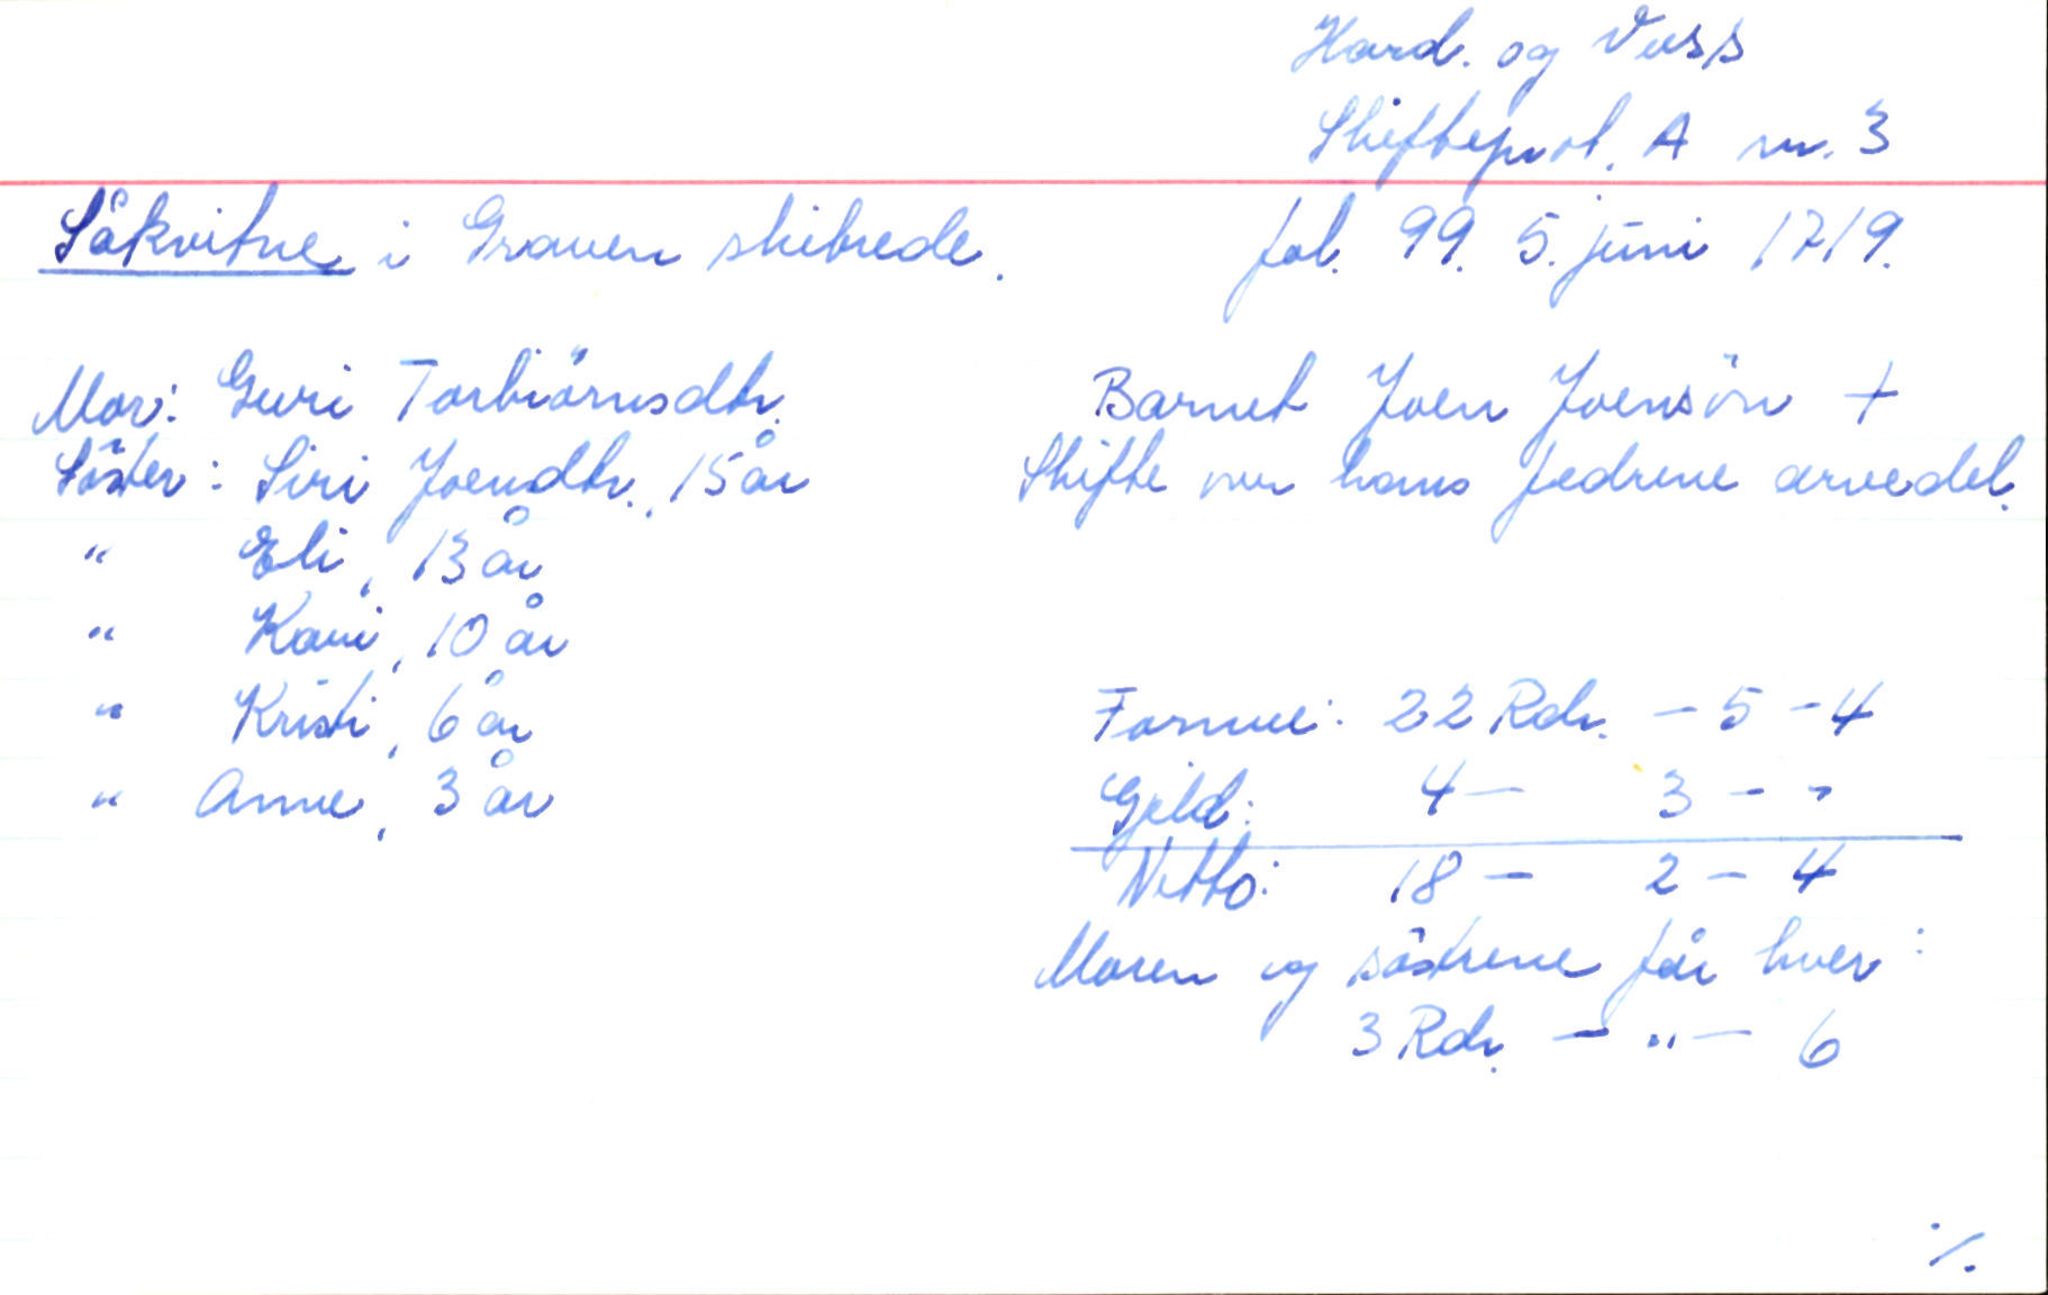 Hard. og Voss
Skifteprot. A nr. 3
Såkvitne i Graven skibrede. fol. 99. 5. juni 1719.
Mor: Guri Torbiörnsdtr. Barnet Joen Joensön +
Söster: Siri Joensdtr., 15 år Skifte over hans fedrene arvedel.
" Eli, 13 år
" Kari, 10 år
" Kristi, 6 år Formue: 22 Rdr. - 5 - 4
" Anne, 3 år Gjeld: 4 - 3 - "
Netto: 18 - 2 - 4
Moren og söstrene får hver:
3 Rdr. - " - 6
·/.